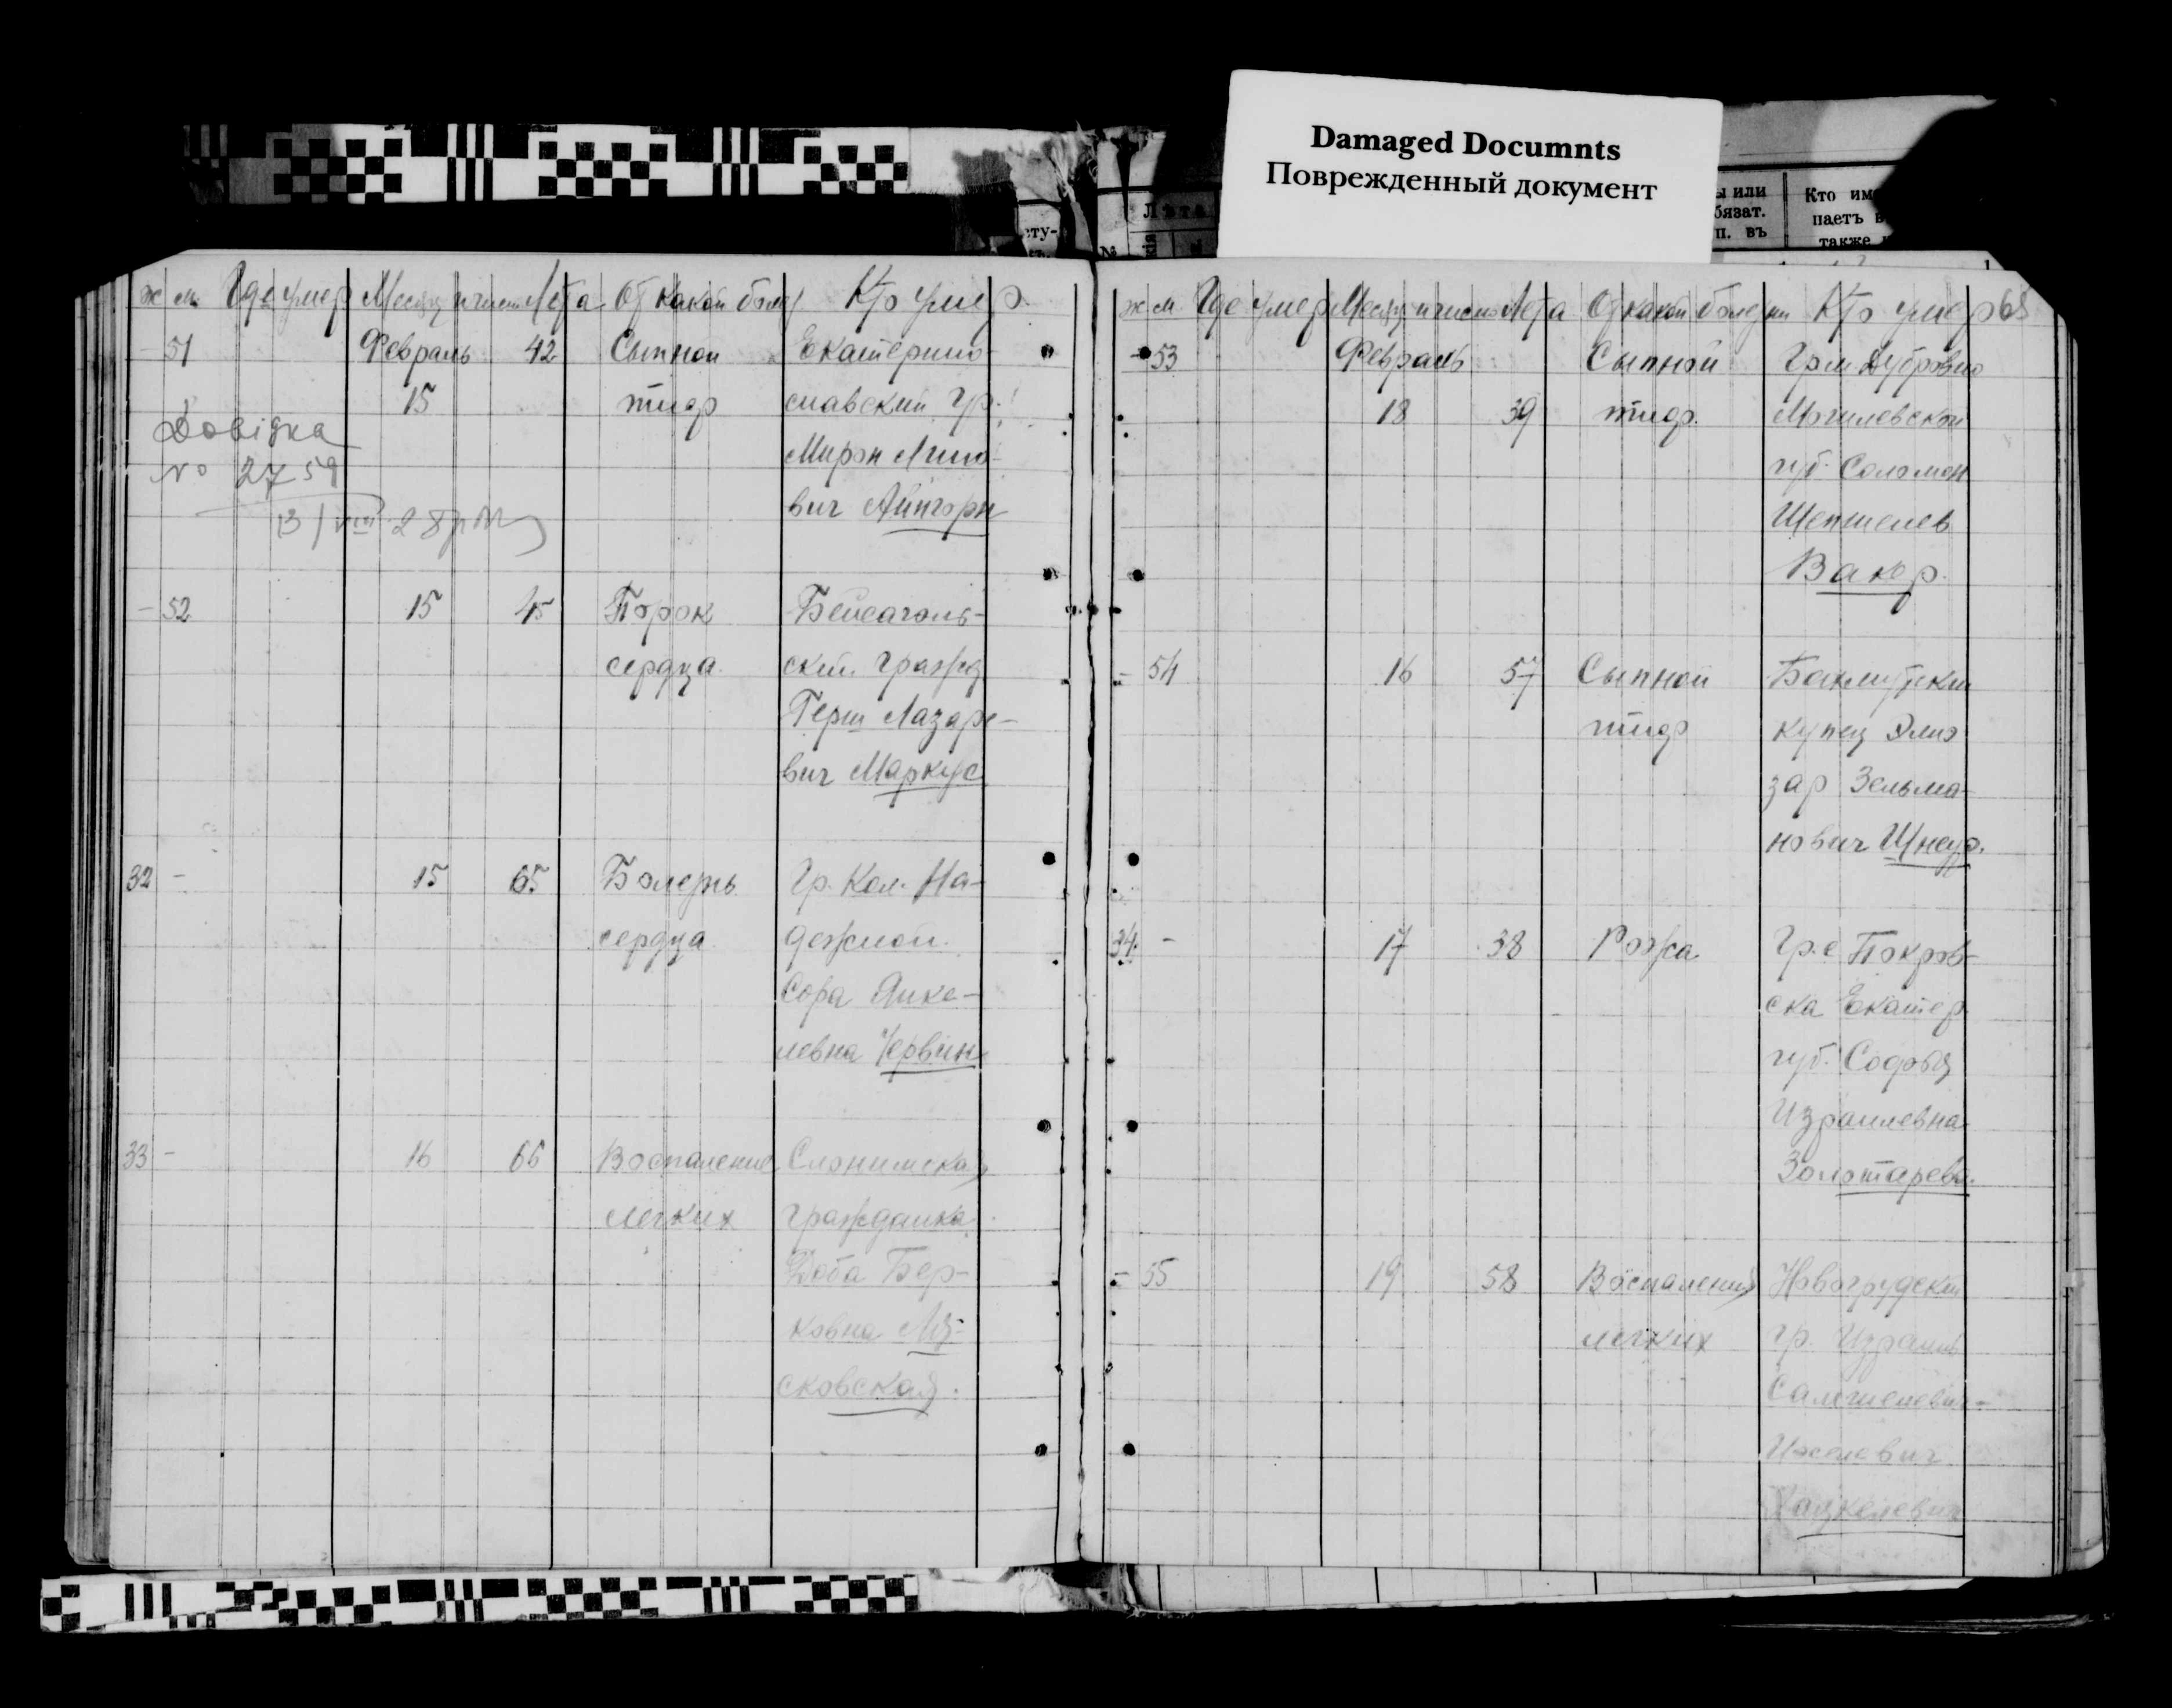 Damaged Documnts
Поврежденный документ
ы или
бязат.
п. въ
Кто им
паетъ в
также
Лѣта
№
ж м. Где умер Месяц и число Лета От какой болез Кто умер.
51 Февраль 42 Сыпной Екатерино-
15 тиф славский гр.
Довідка
No 2759 Мирон
вич
- 52 15 45 Порок Бейсаголь-
сердца. ский гражд
Герш Лазаре-
вич Маркус
32 - 15 65 Болезнь Гр. Кол. На-
сердца дежной.
Сора Янке-
левна Червин
33 - 16 66 Воспаление Слонимская
легких гражданка
Доба Бер-
ковна
сковская.
ж м Где умер Месяц и число Лета От какой болезни Кто умер 68
- 53 Февраль Сыпной Грж Дубровно
18 39 тиф. Могилевской
губ. Соломон
Шепшелев
Вакер.
- 54 16 57 Сыпной Бахмутский
тиф купец Элиэ
зар Зельма-
нович Шнеур.
34. - 17 38 Рожа Гр. с Покров-
ска Екатер
губ. Софья
Израилевна
Золотарева.
- 55 19 58 Воспаление Новогрудский
легких гр. Израиль